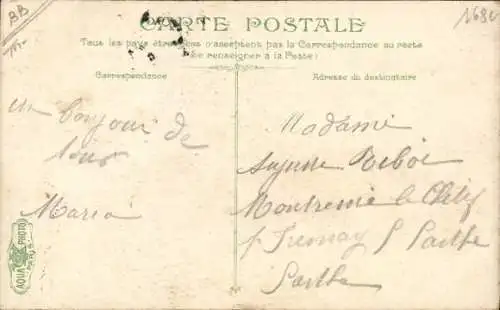 BB
1680
CARTE POSTALE
Tous les pays étrangers n'acceptent pas la Correspondance au recto
(Se renseigner à la Poste)
Correspondance
Adresse du destinataire
un bonjour de
tous
Maria
Madame
Montreuil le Chétif
p Fresnay s Sarthe
Sarthe
AQUA PHOTO
PARIS